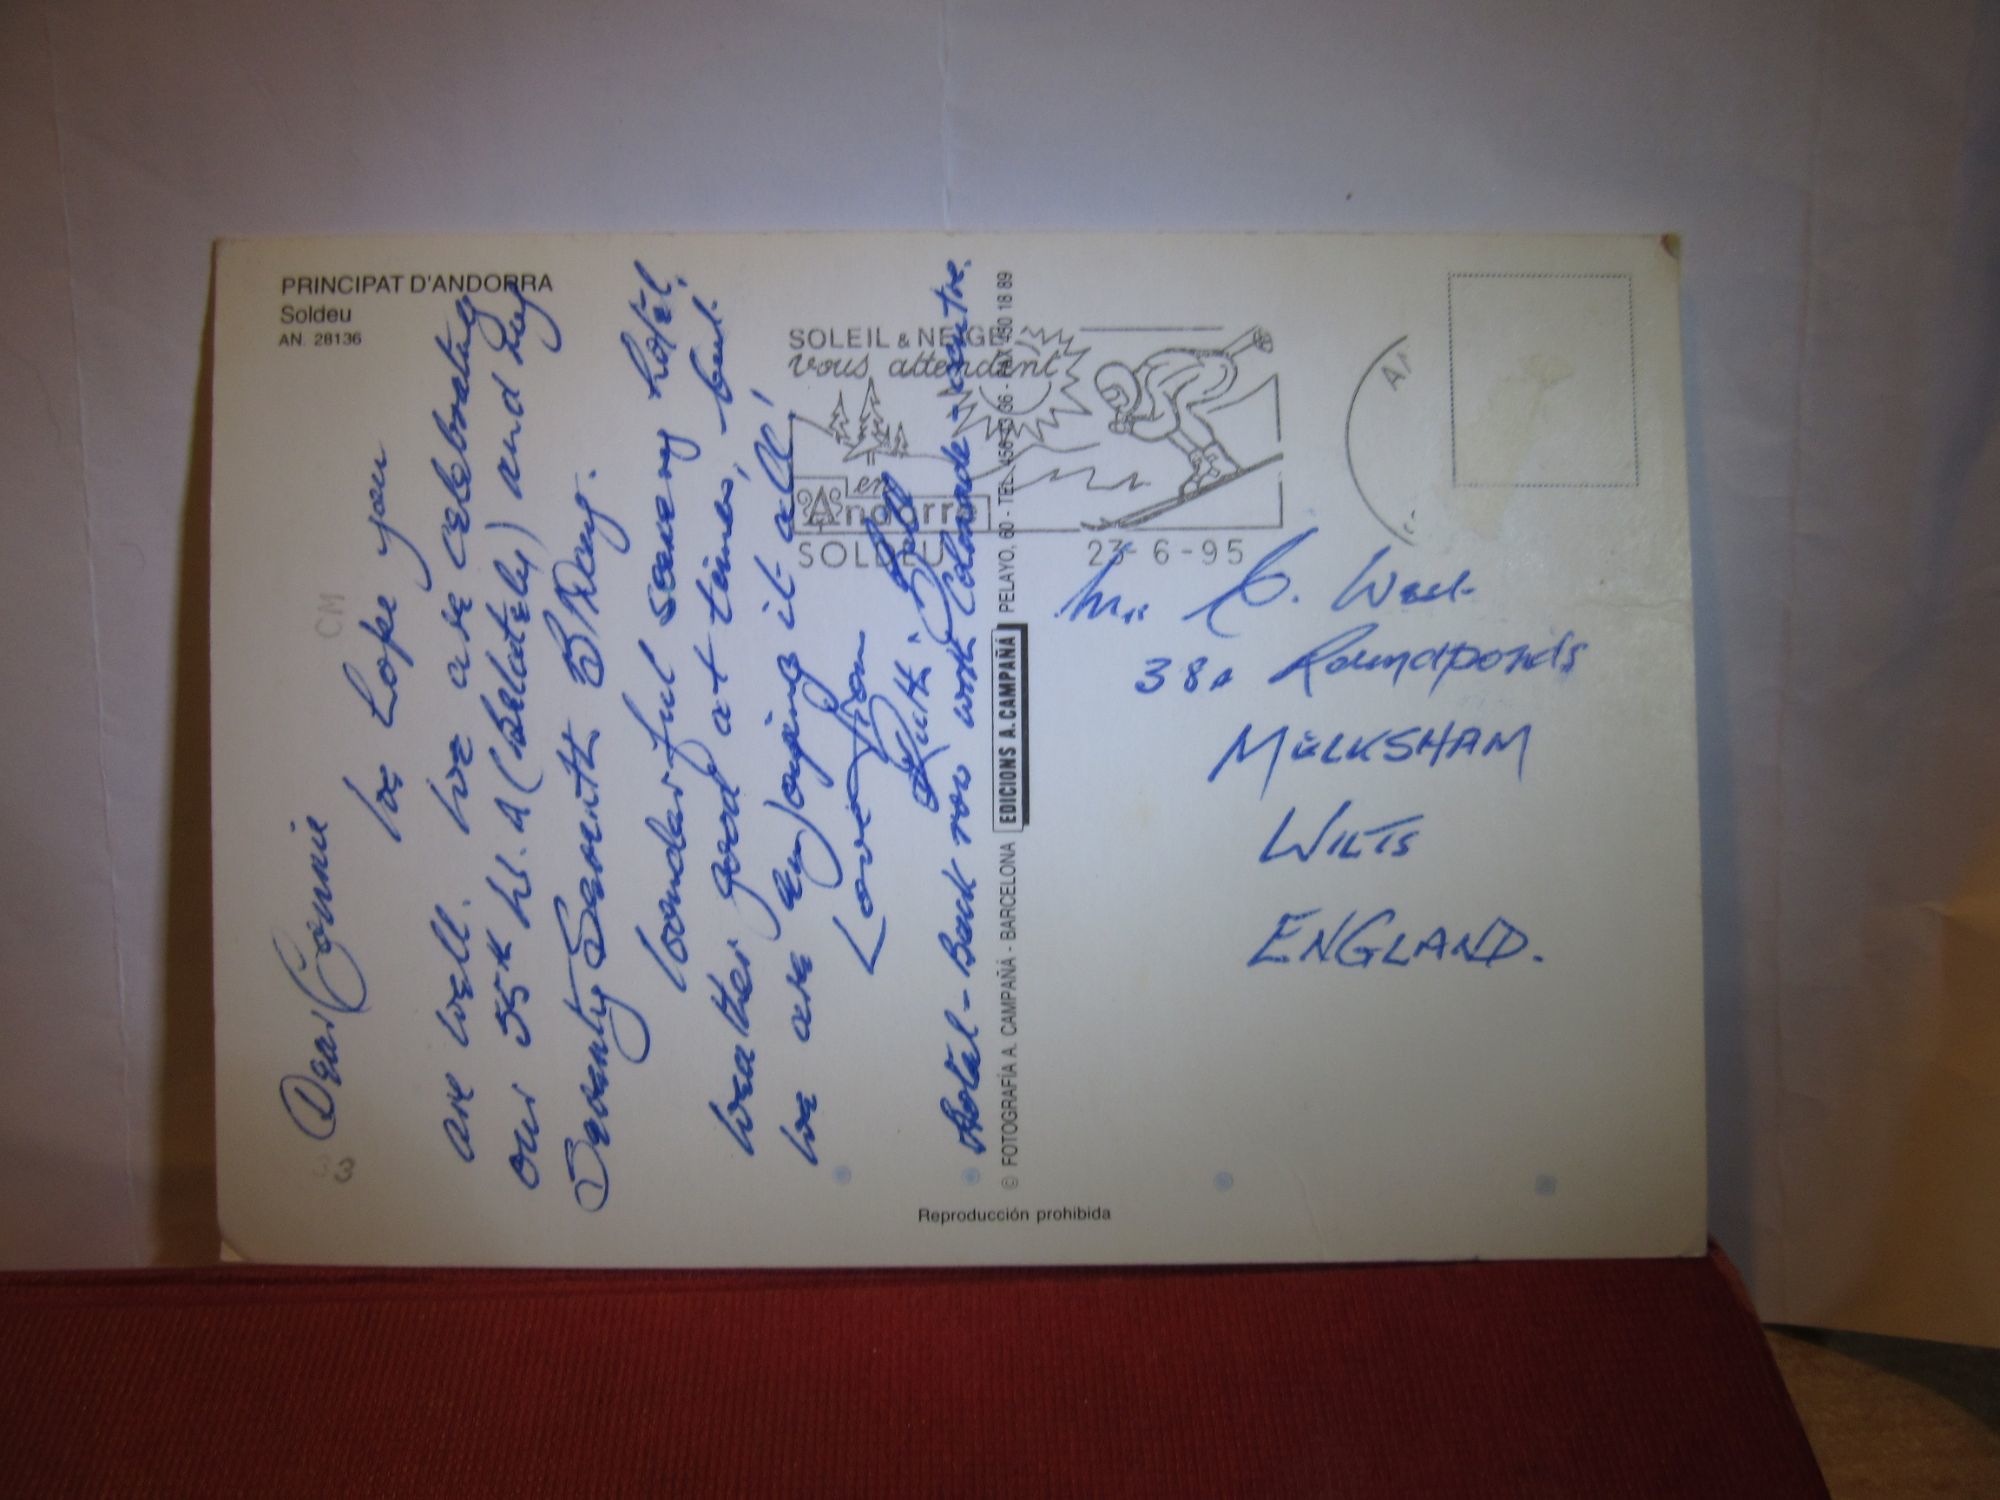 PRINCIPAT D'ANDORRA
Soldeu
AN. 28136
CM
3
Dear Connie
We hope you
are well. We are celebrating
our 55th W. A (Belatedly) and my
Seventy Seventh B/Day.
Wonderful scenery hotel,
weather good at times, but
we are enjoying it all!
Love from
Ruth & Bill
Hotal - Back row with Colonade - centre.
© FOTOGRAFÍA A. CAMPAÑÁ - BARCELONA EDICIONS A. CAMPAÑÁ PELAYO, 60 - TEL. 456 13 36 - FAX 450 18 89
Reproducción prohibida
SOLEIL & NEIGE
vous attendent
en
Andorra
SOLDEU 23-6-95
A
C. West
38A Roundponds
MELKSHAM
WILTS
ENGLAND.